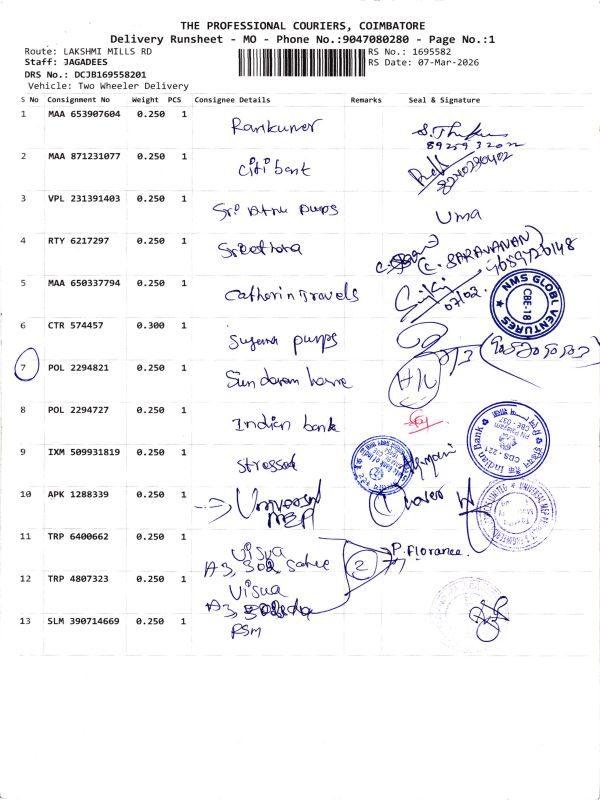 THE PROFESSIONAL COURIERS, COIMBATORE
Delivery Runsheet - MO - Phone No.:9047080280 - Page No.:1
Route: LAKSHMI MILLS RD
RS No.: 1695582
Staff: JAGADEES
RS Date: 07-Mar-2026
DRS No.: DCJB169558201
Vehicle: Two Wheeler Delivery
S No Consignment No Weight PCS Consignee Details Remarks Seal & Signature
1 MAA 653907604 0.250 1 Ramkumar
2 MAA 871231077 0.250 1 Citi bank 8240230402
3 VPL 231391403 0.250 1 Sri pumps Uma
4 RTY 6217297 0.250 1 Sreethara (C. SARAVANAN)
5 MAA 650337794 0.250 1 Catherin Travels 07/02.
NMS GLOBL VENTURES CBE-18
6 CTR 574457 0.300 1 Suguna pumps
7 POL 2294821 0.250 1 Sundaram home H/L
8 POL 2294727 0.250 1 Indian bank
Indian Bank CDS - 221
9 IXM 509931819 0.250 1 Stressed
10 APK 1288339 0.250 1 Universal MEP 1
11 TRP 6400662 0.250 1 Visva P. Florance
A3, 302 2
12 TRP 4807323 0.250 1 Visua
A3,
13 SLM 390714669 0.250 1 RSM